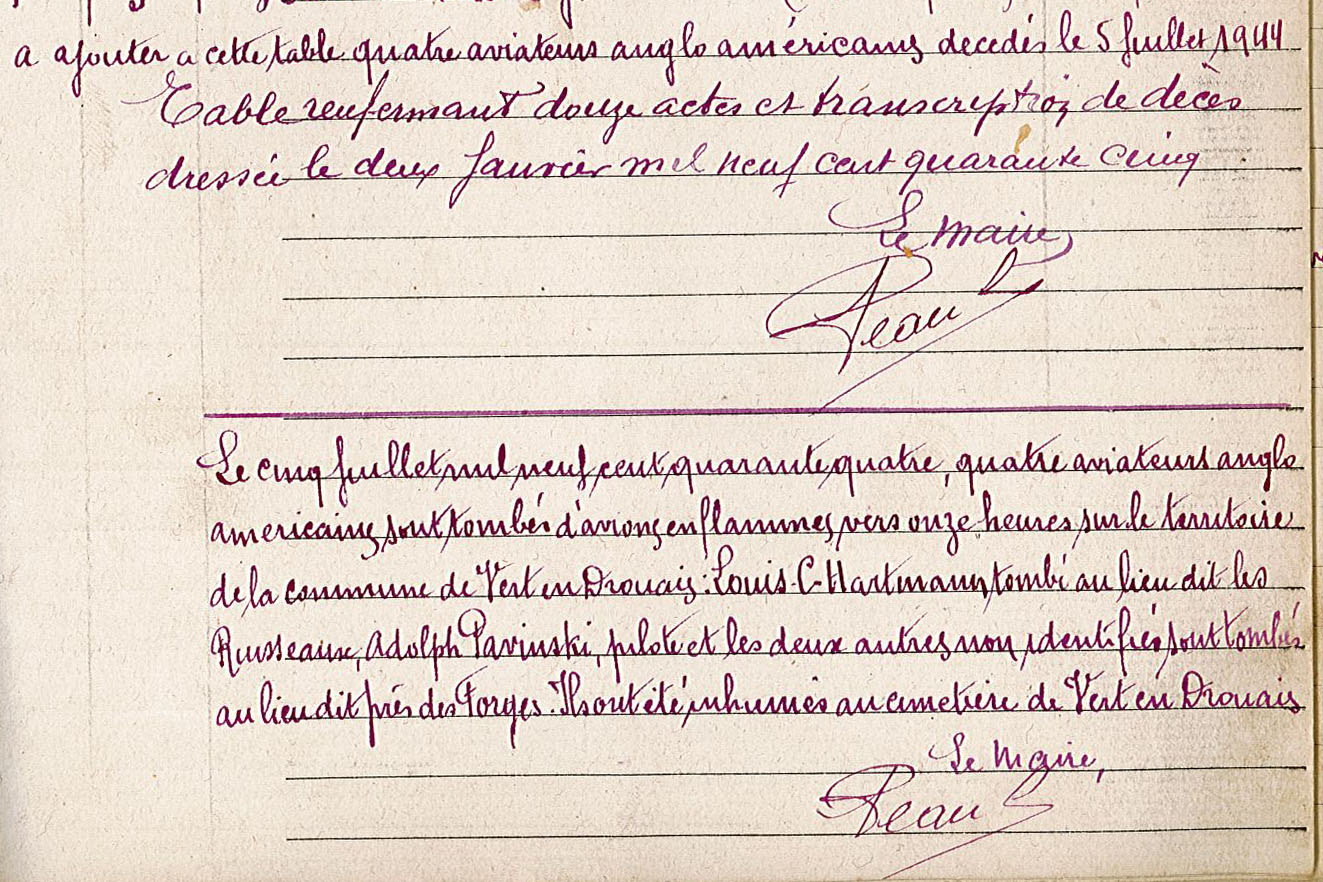 a ajouter a cette table quatre aviateurs anglo américains decedés le 5 Juillet 1944
Table renfermant douze actes et transcription de décès
dressée le deux Janvier mil neuf cent quarante cinq
Le Maire
Peau
Le cinq juillet mil neuf cent quarante quatre, quatre aviateurs anglo
americains sont tombés d'avions en flammes, vers onze heures, sur le territoire
de la commune de Vert en Drouais: Louis C Hartmann, tombé au lieu dit les
Ruisseaux, Adolph Pavinski, pilote et les deux autres non identifiés sont tombés
au lieu dit prés des Forges. Ils ont été inhumés au cimetière de Vert en Drouais
Le Maire,
Peau